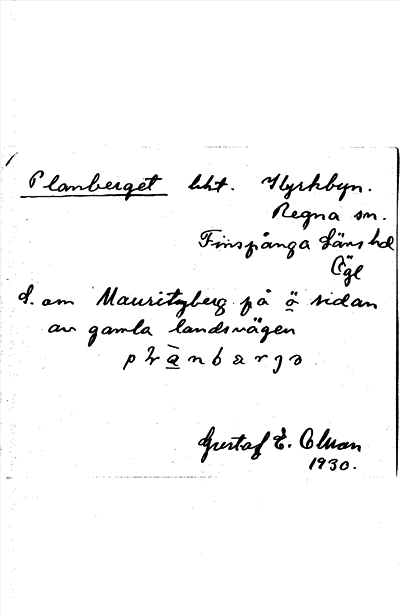 Planberget bht. Kyrkbyn.
Regna sn.
Finspånga läns hd
Ögl
S. om Mauritzberg på ö sidan
av gamla landsvägen
Gustaf E.
1930.